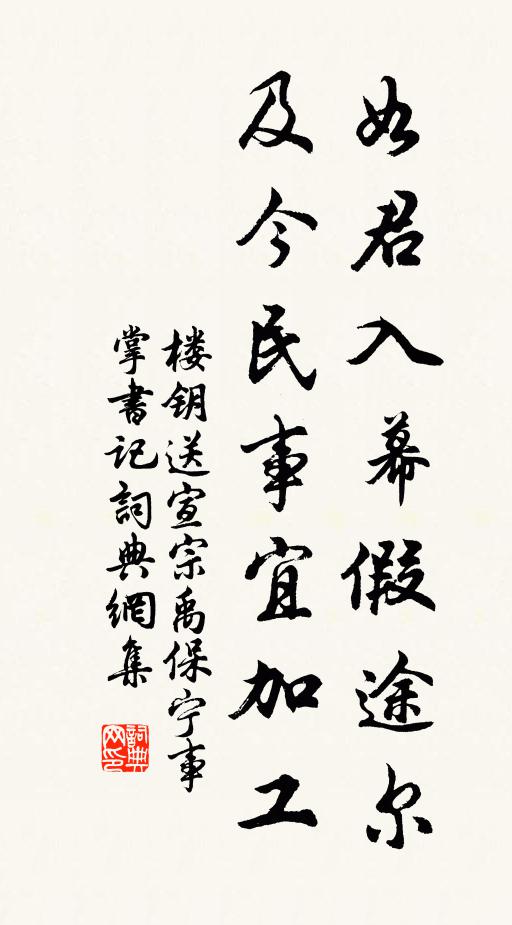 如君入幕假途尔
及今民事宜加工
楼钥送宣宗禹保宁事
掌書记詞典網集
詞典网印